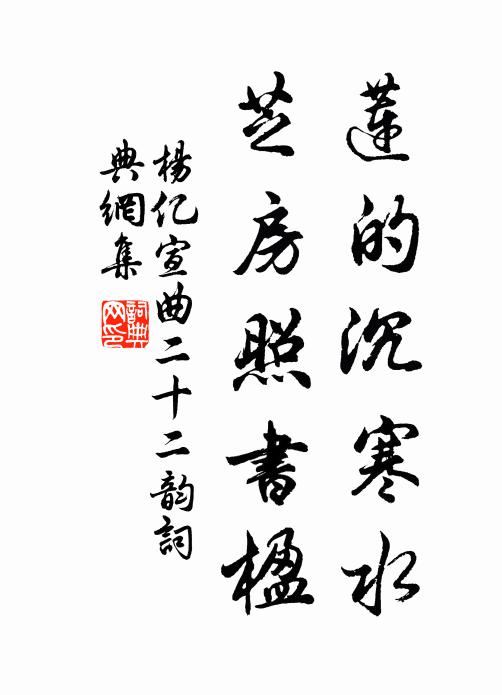 蓮的沉寒水
芝房照書楹
楊亿宣曲二十二韵詞
典網集
詞典网印